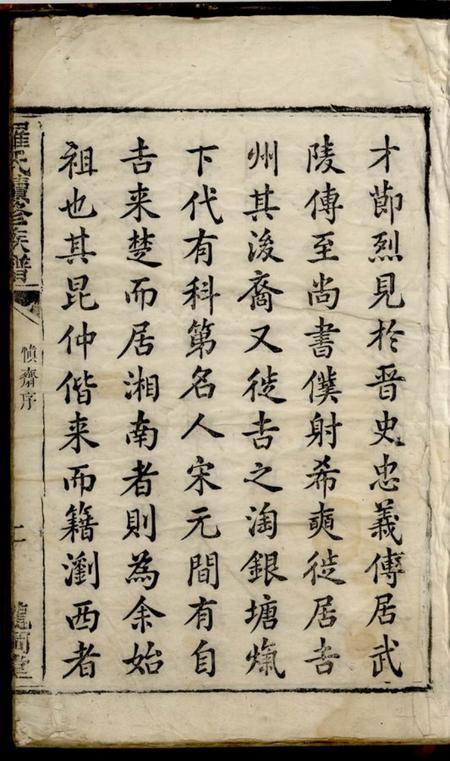 才節烈見於晋史忠義傳居武
陵傳至尚書僕射希奭徙居吉
州其後裔又徙吉之淘銀塘㷼
下代有科第名人宋元間有自
吉来楚而居湘南者則為余始
祖也其昆仲偕来而籍瀏西者
羅氏續修族譜
慎齋序
二